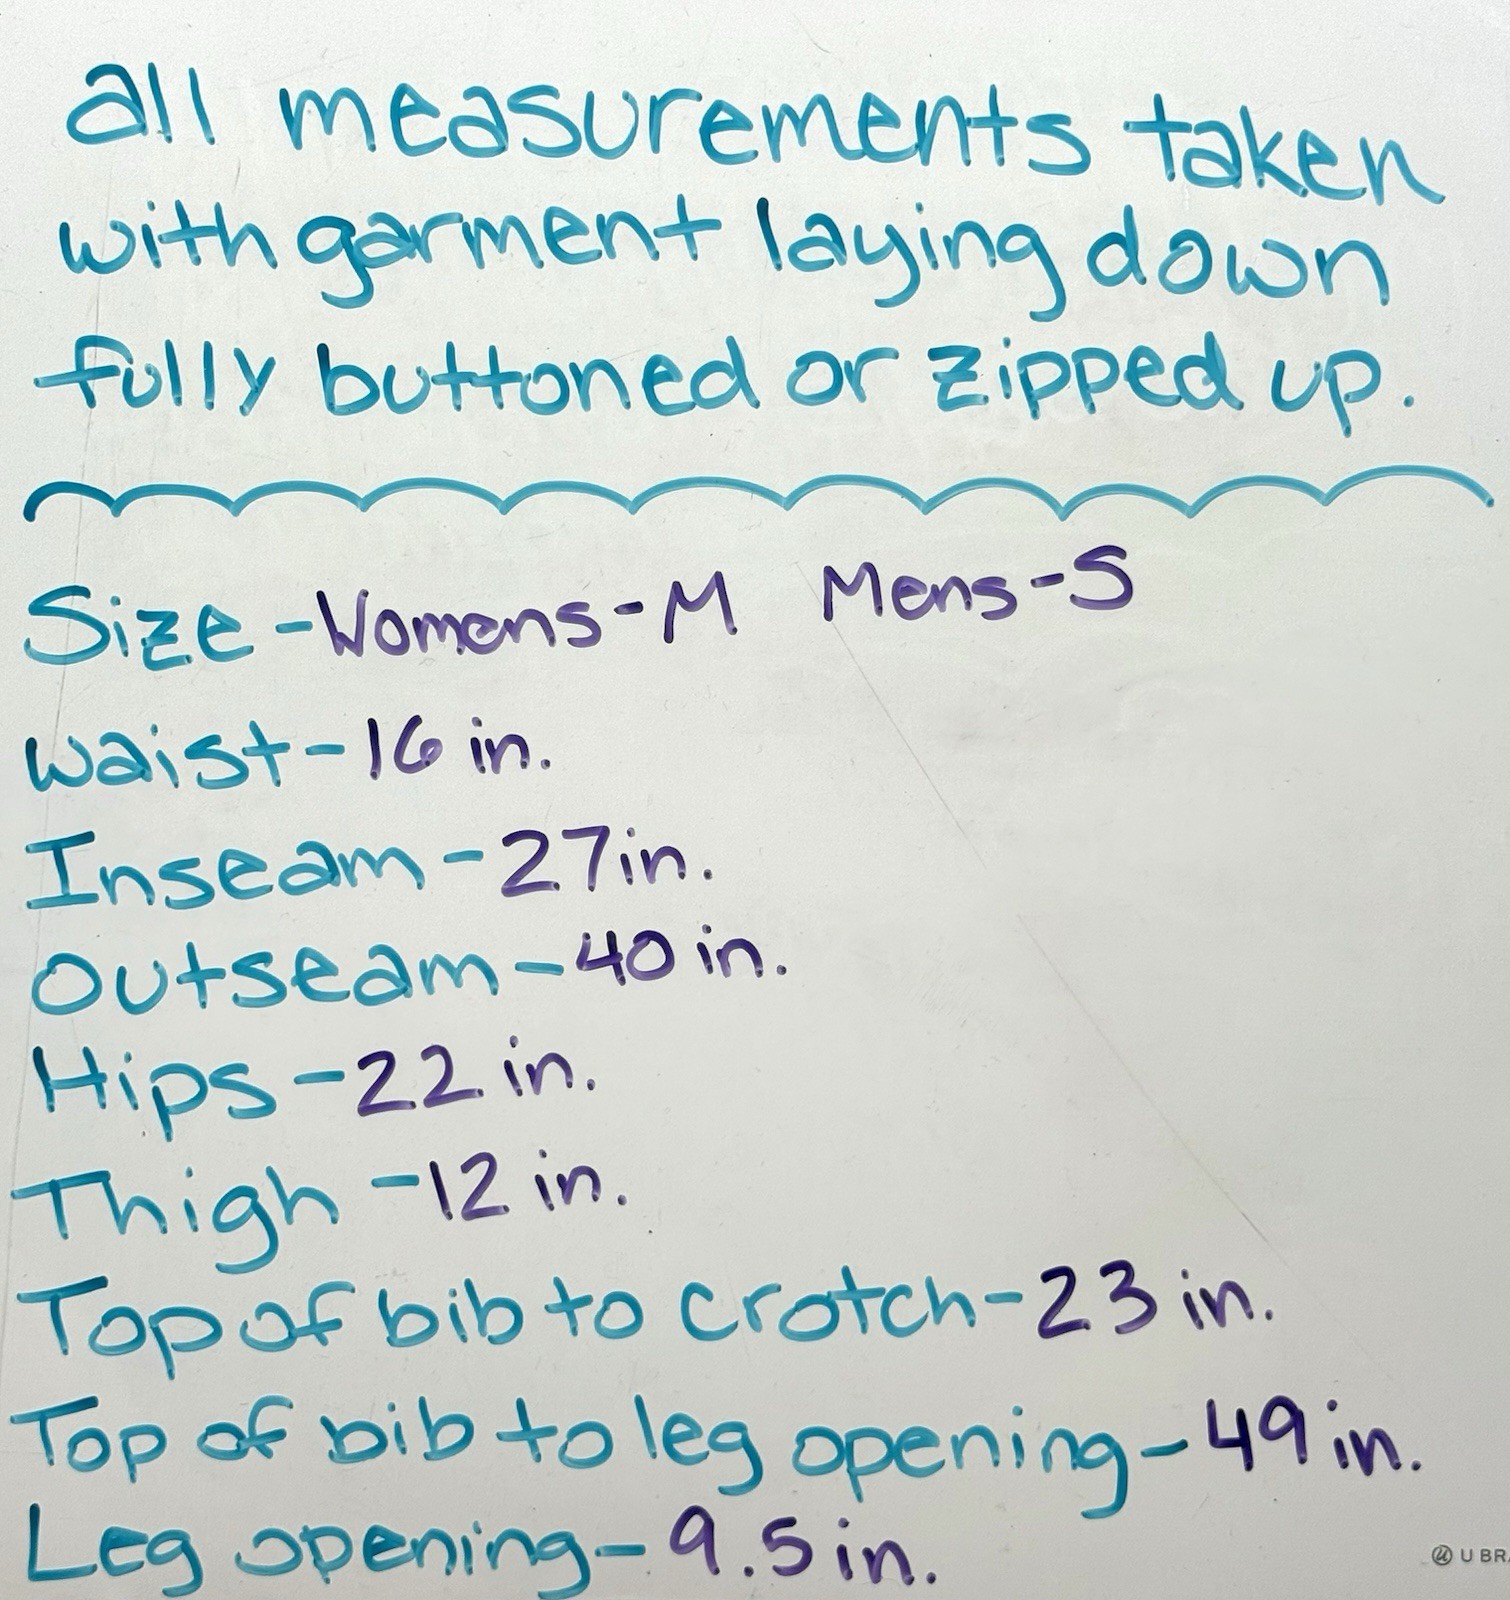 all measurements taken
with garment laying down
fully buttoned or zipped up.
Size - Womens - M Mens - S
waist - 16 in.
Inseam - 27 in.
Outseam - 40 in.
Hips - 22 in.
Thigh - 12 in.
Top of bib to crotch - 23 in.
Top of bib to leg opening - 49 in.
Leg opening - 9.5 in.
U BRA